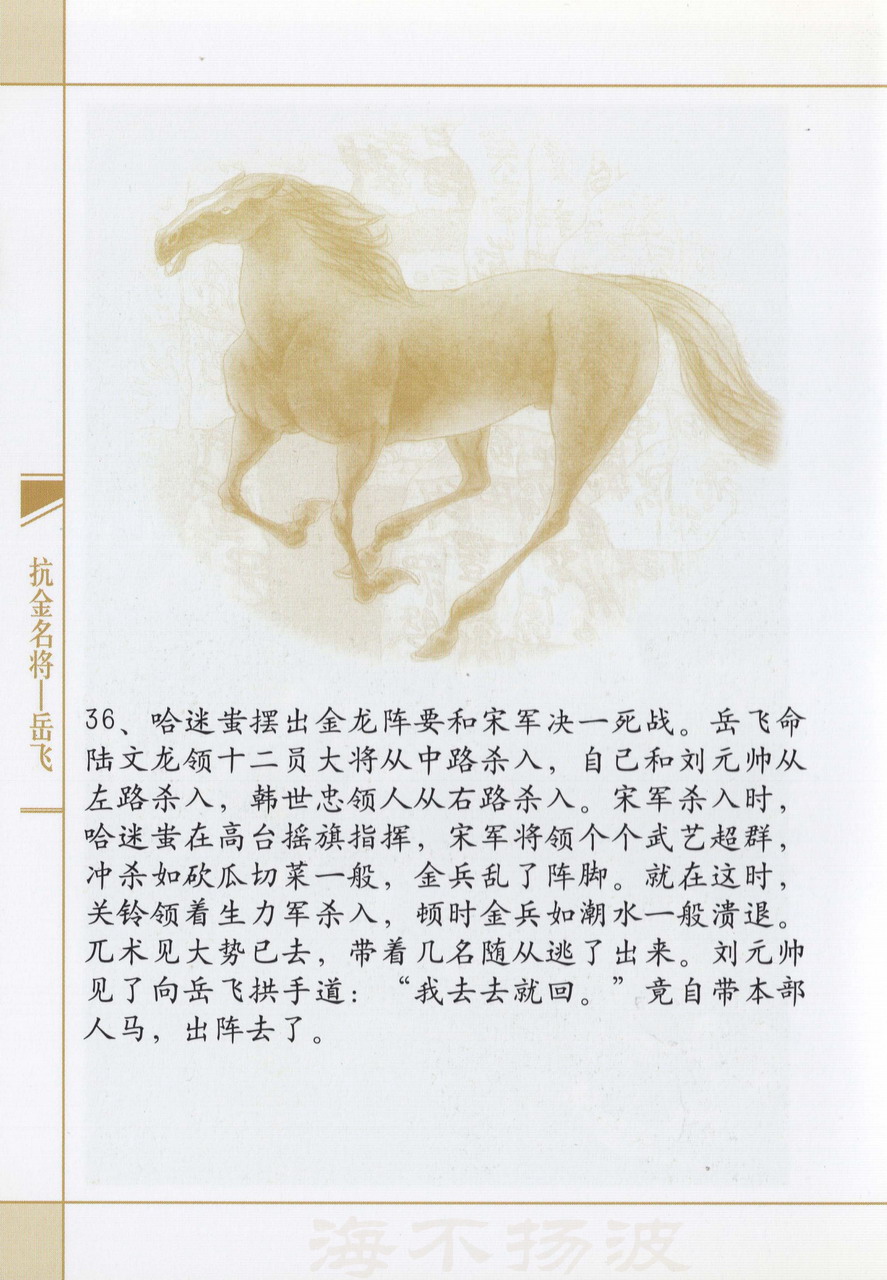 抗金名将—岳飞
36、哈迷蚩摆出金龙阵要和宋军决一死战。岳飞命
陆文龙领十二员大将从中路杀入，自己和刘元帅从
左路杀入，韩世忠领人从右路杀入。宋军杀入时，
哈迷蚩在高台摇旗指挥，宋军将领个个武艺超群，
冲杀如砍瓜切菜一般，金兵乱了阵脚。就在这时，
关铃领着生力军杀入，顿时金兵如潮水一般溃退。
兀术见大势已去，带着几名随从逃了出来。刘元帅
见了向岳飞拱手道：“我去去就回。”竟自带本部
人马，出阵去了。
海不扬波